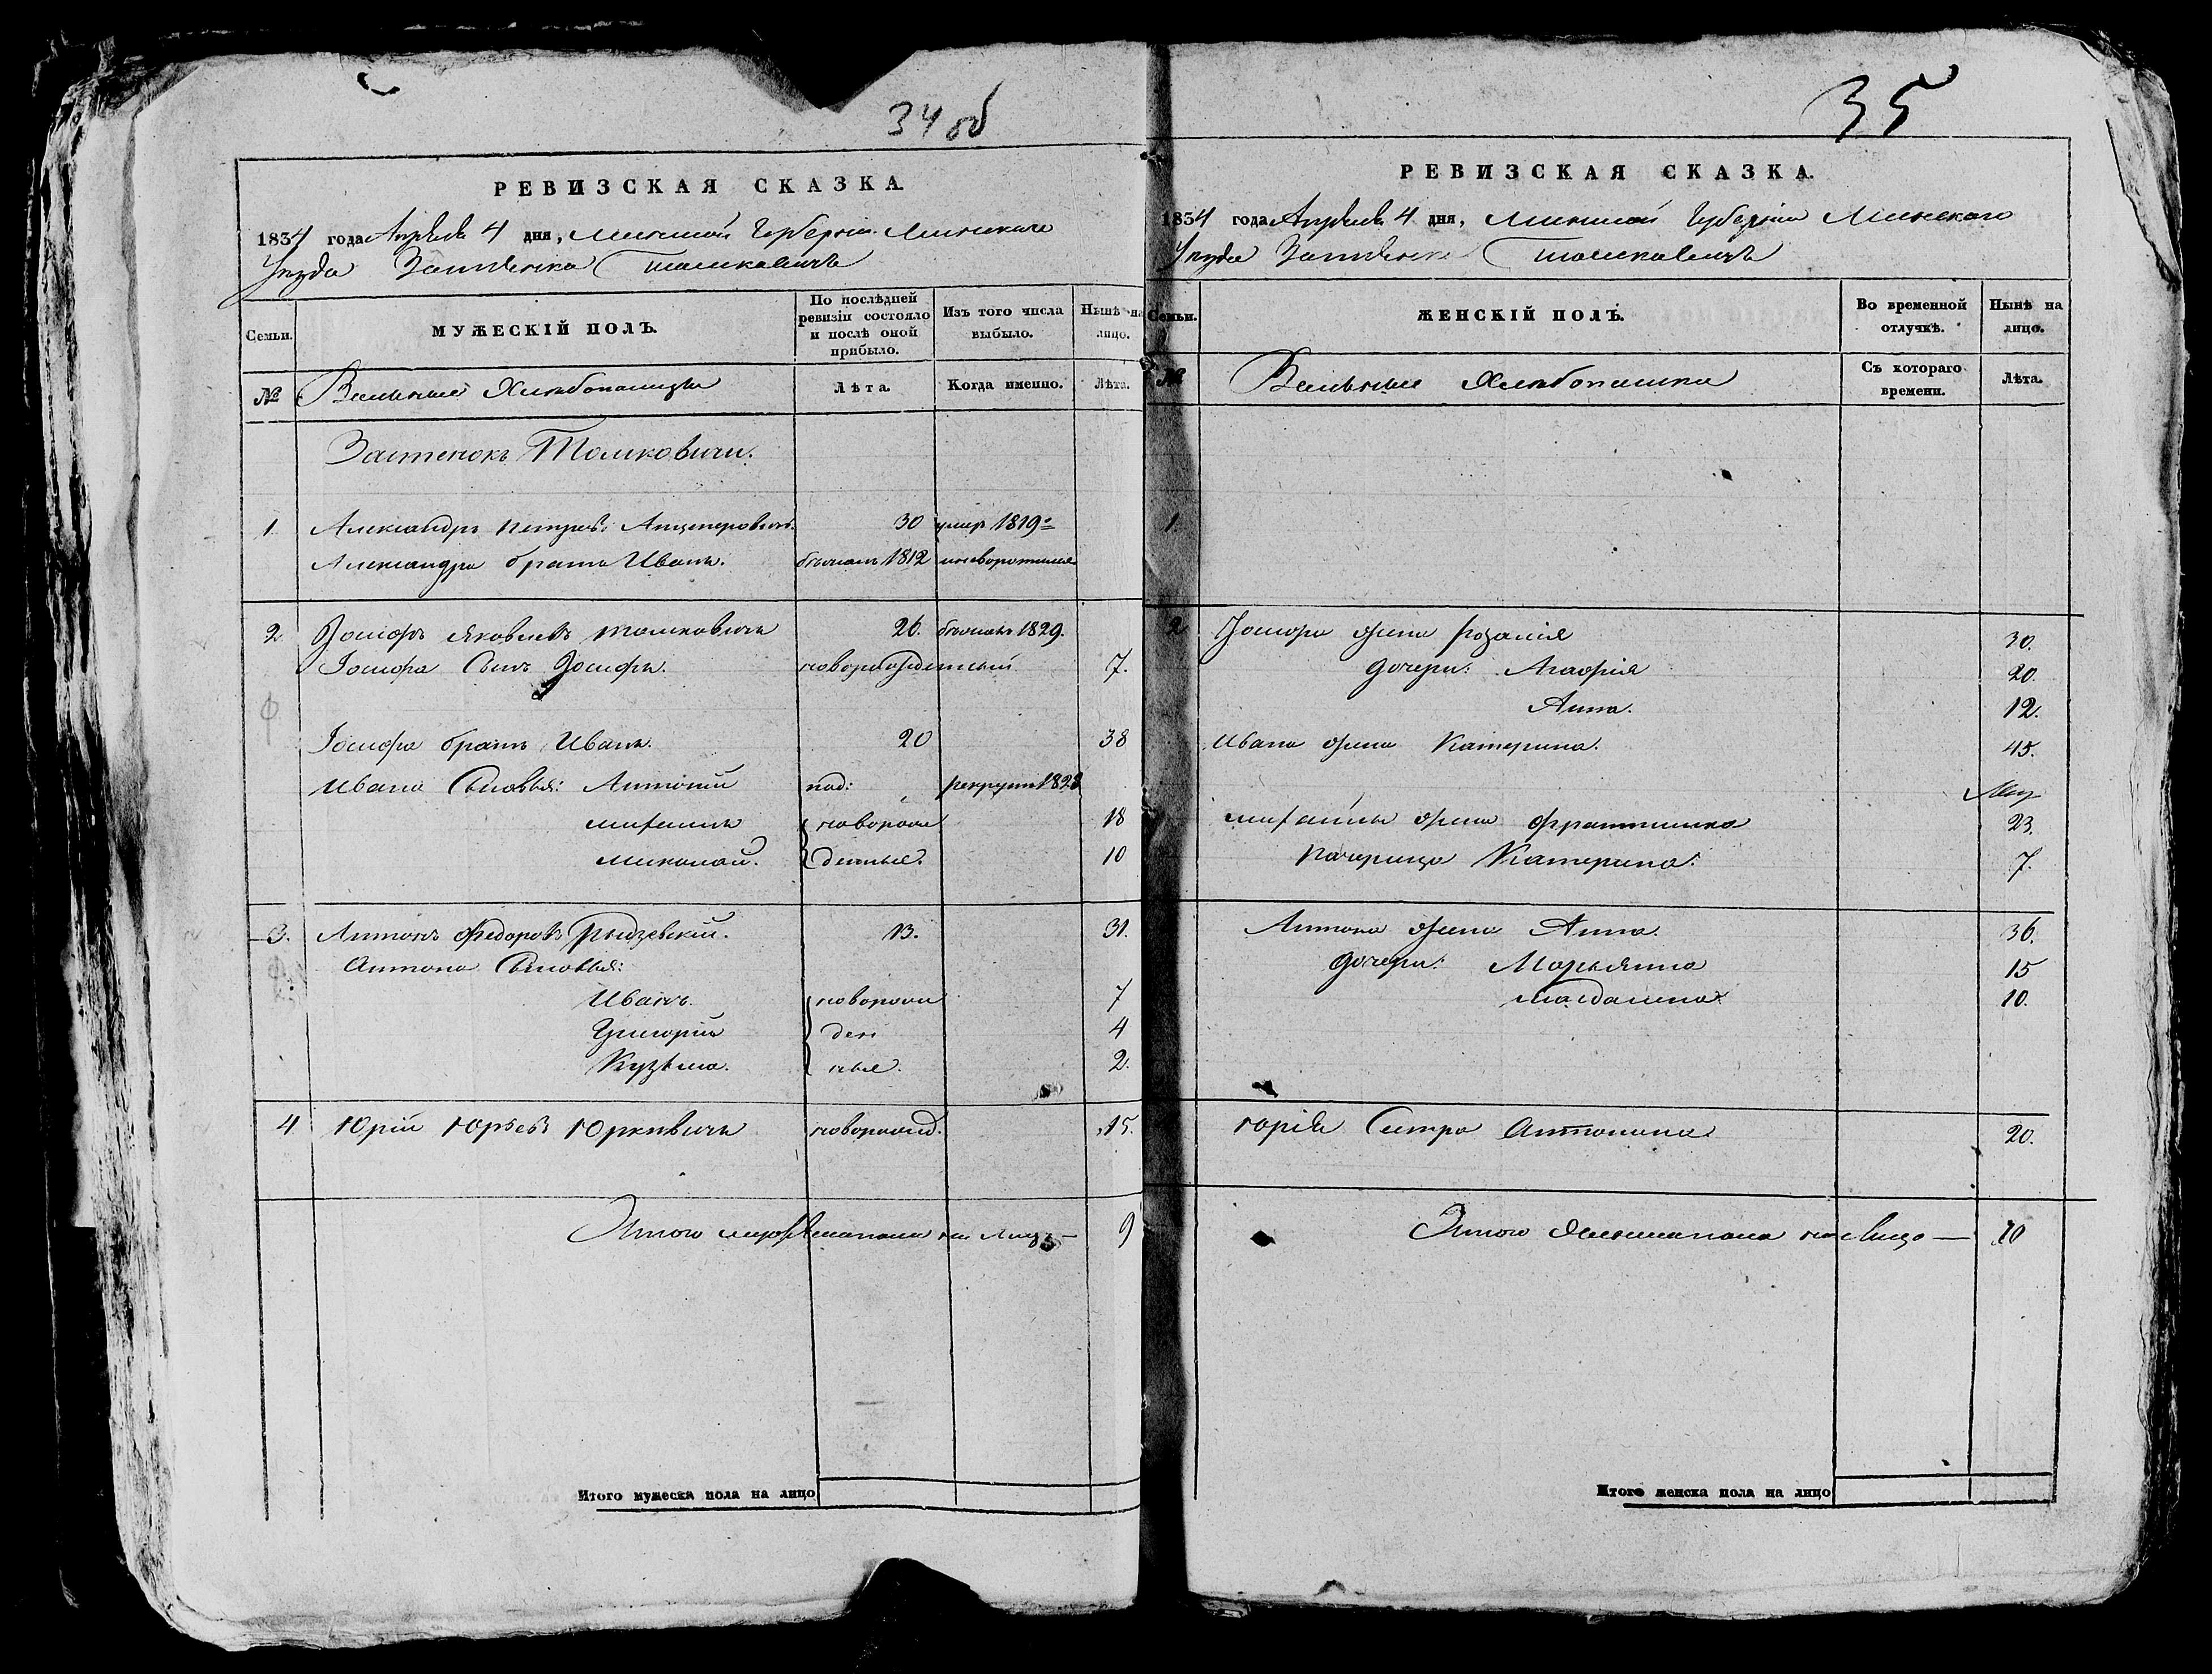 34 об
РЕВИЗСКАЯ СКАЗКА.
1834 года Апреля 4 дня, Минской Губерніи Минскаго
Уезда Застенка Томковичъ
Семьи.
МУЖЕСКІЙ ПОЛЪ.
По послѣдней ревизіи состояло и послѣ оной прибыло.
Изъ того числа выбыло.
Нынѣ на лицо.
№
Вольные Хлебопашцы
Лѣта.
Когда именно.
Лѣта.
Застенокъ Томковичи.
1. Александръ Петровъ 30 умер 1819
Александра братъ Иванъ. 1812
2 Іосифъ Яковлевъ Томковичъ 26. 1829.
Іосифа Сынъ Іосифъ. новорожденный 7.
Іосифа братъ Иванъ. 20 38
Ивана Сыновья: Антоній рекрут 1828
Михаилъ новорож 18
Миколай. денные. 10
3. Антонъ Федоровъ Рыдзевскій. 13. 31.
Антона Сыновья:
Иванъ. новорож 7
Григорій ден 4
Кузьма. ные. 2.
4 Юрій Юрьевъ Юркевичъ новорожд. 15.
Итого мужеска пола на лицо — 9
Итого мужеска пола на лицо
35
РЕВИЗСКАЯ СКАЗКА.
1834 года Апреля 4 дня, Минской Губерніи Минскаго
Уезда Застенка Томковичъ
Семьи.
ЖЕНСКІЙ ПОЛЪ.
Во временной отлучкѣ.
Нынѣ на лицо.
№
Вольные Хлебопашки
Съ котораго времени.
Лѣта.
1.
2 Іосифа жена Розалія 30.
дочери: Агафія 20.
Анна. 12.
Ивана жена Катерина. 45.
Михаила жена Франтишка 23.
Катерина. 7.
Антона жена Анна. 36.
дочери: Марьянна 15
Магдалина. 10.
Юрія Сестра Антонина. 20.
Итого Женскаго пола на лицо — 10
Итого женска пола на лицо